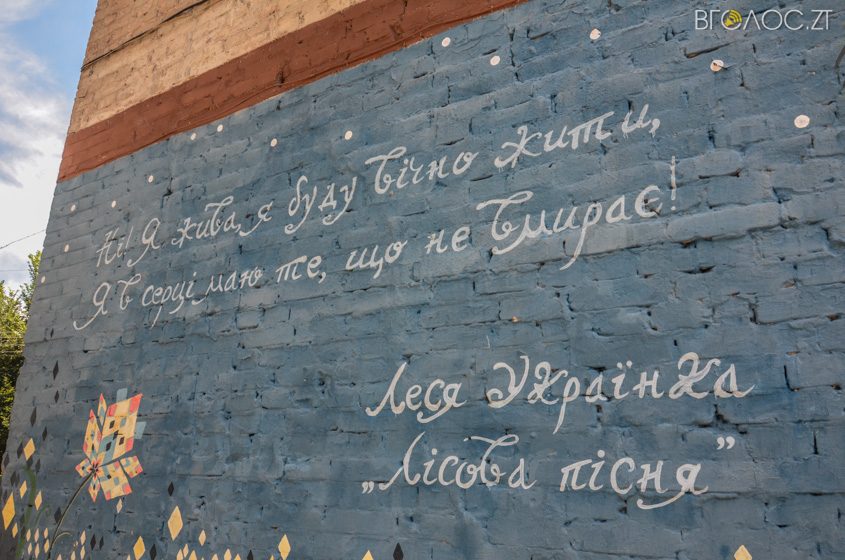 ВГОЛОС.ZT
Ні! Я жива, я буду вічно жити,
Я в серці маю те, що не вмирає!
Леся Українка
„Лісова пісня”